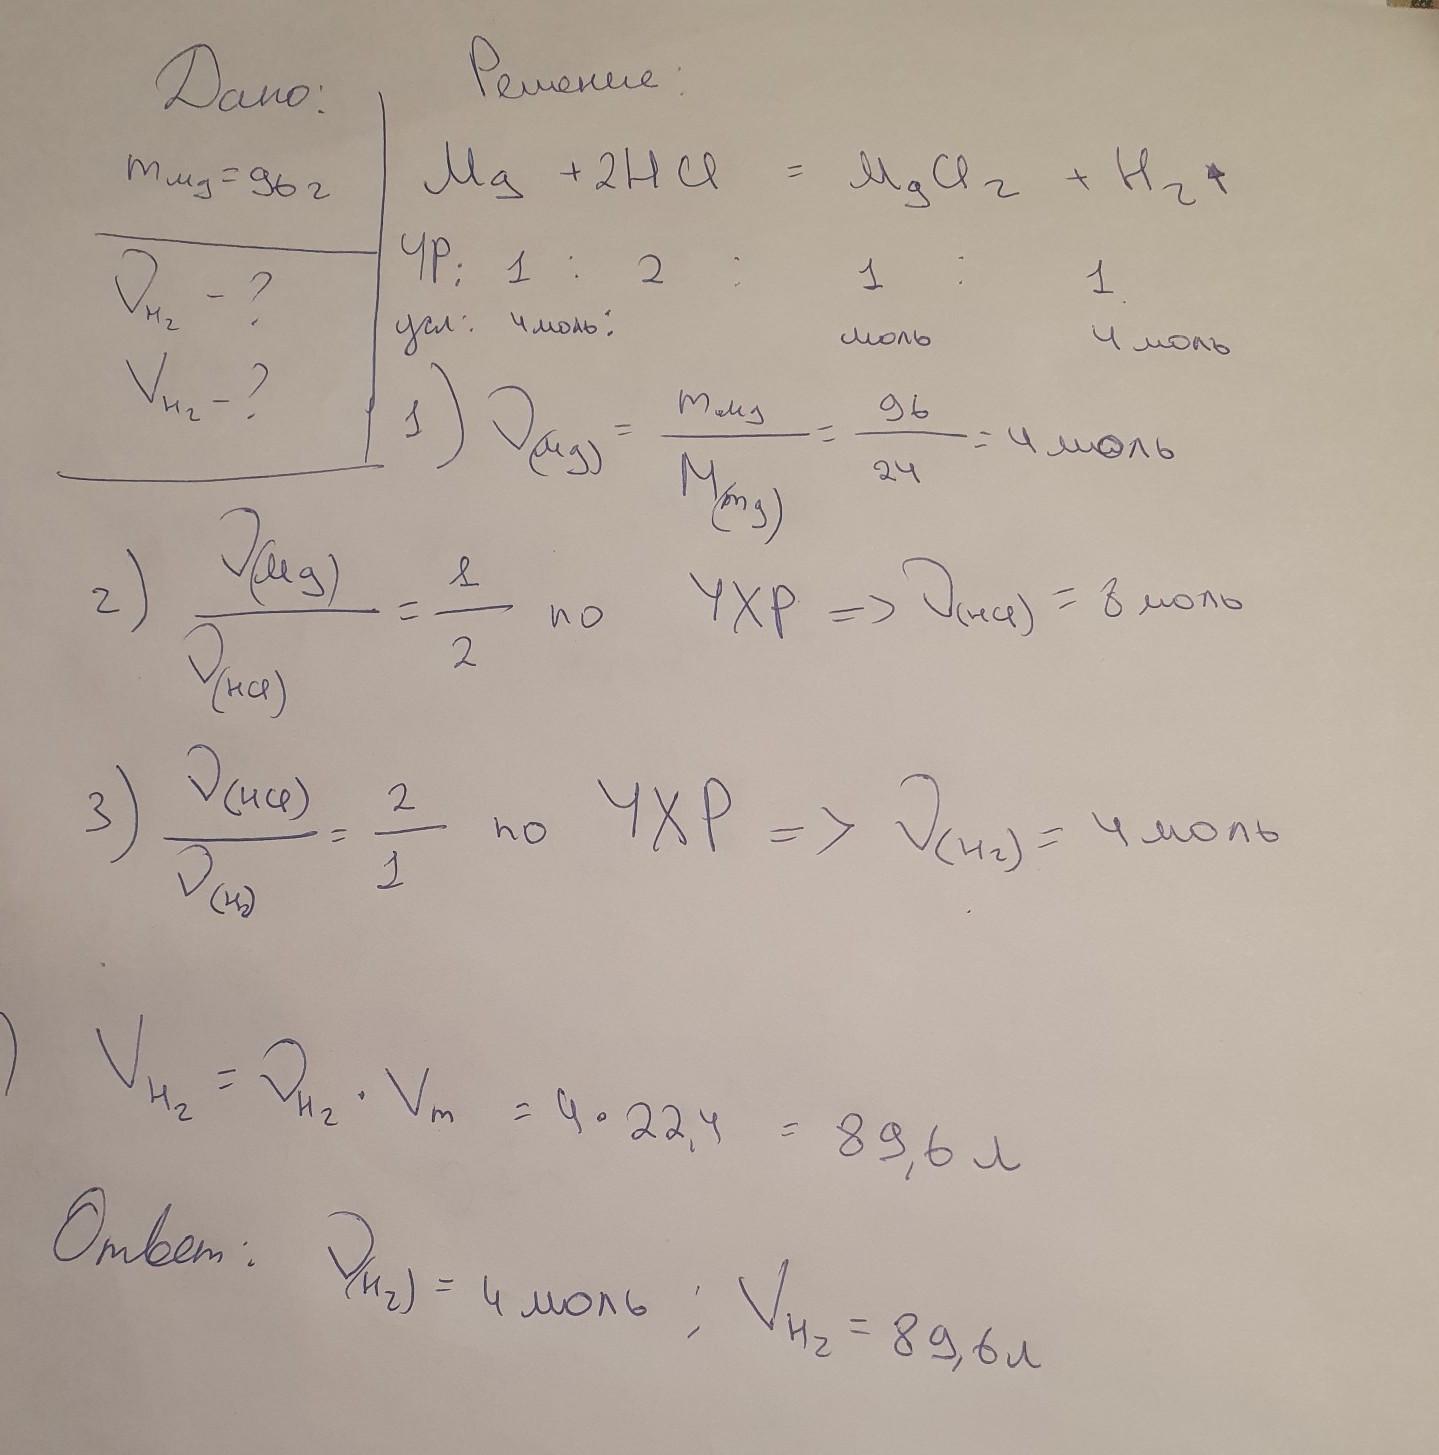 Дано:
Решение:
mMg = 96 г
Mg + 2HCl = MgCl2 + H2↑
УР: 1 : 2 : 1 : 1
усл: 4 моль: моль 4 моль
νH2 - ?
VH2 - ?
1) ν(Mg) = mMg / M(mg) = 96 / 24 = 4 моль
2) ν(Mg) / ν(HCl) = 1 / 2 по УХР => ν(HCl) = 8 моль
3) ν(HCl) / ν(H2) = 2 / 1 по УХР => ν(H2) = 4 моль
) VH2 = νH2 · Vm = 4 · 22,4 = 89,6 л
Ответ: ν(H2) = 4 моль ; VH2 = 89,6 л